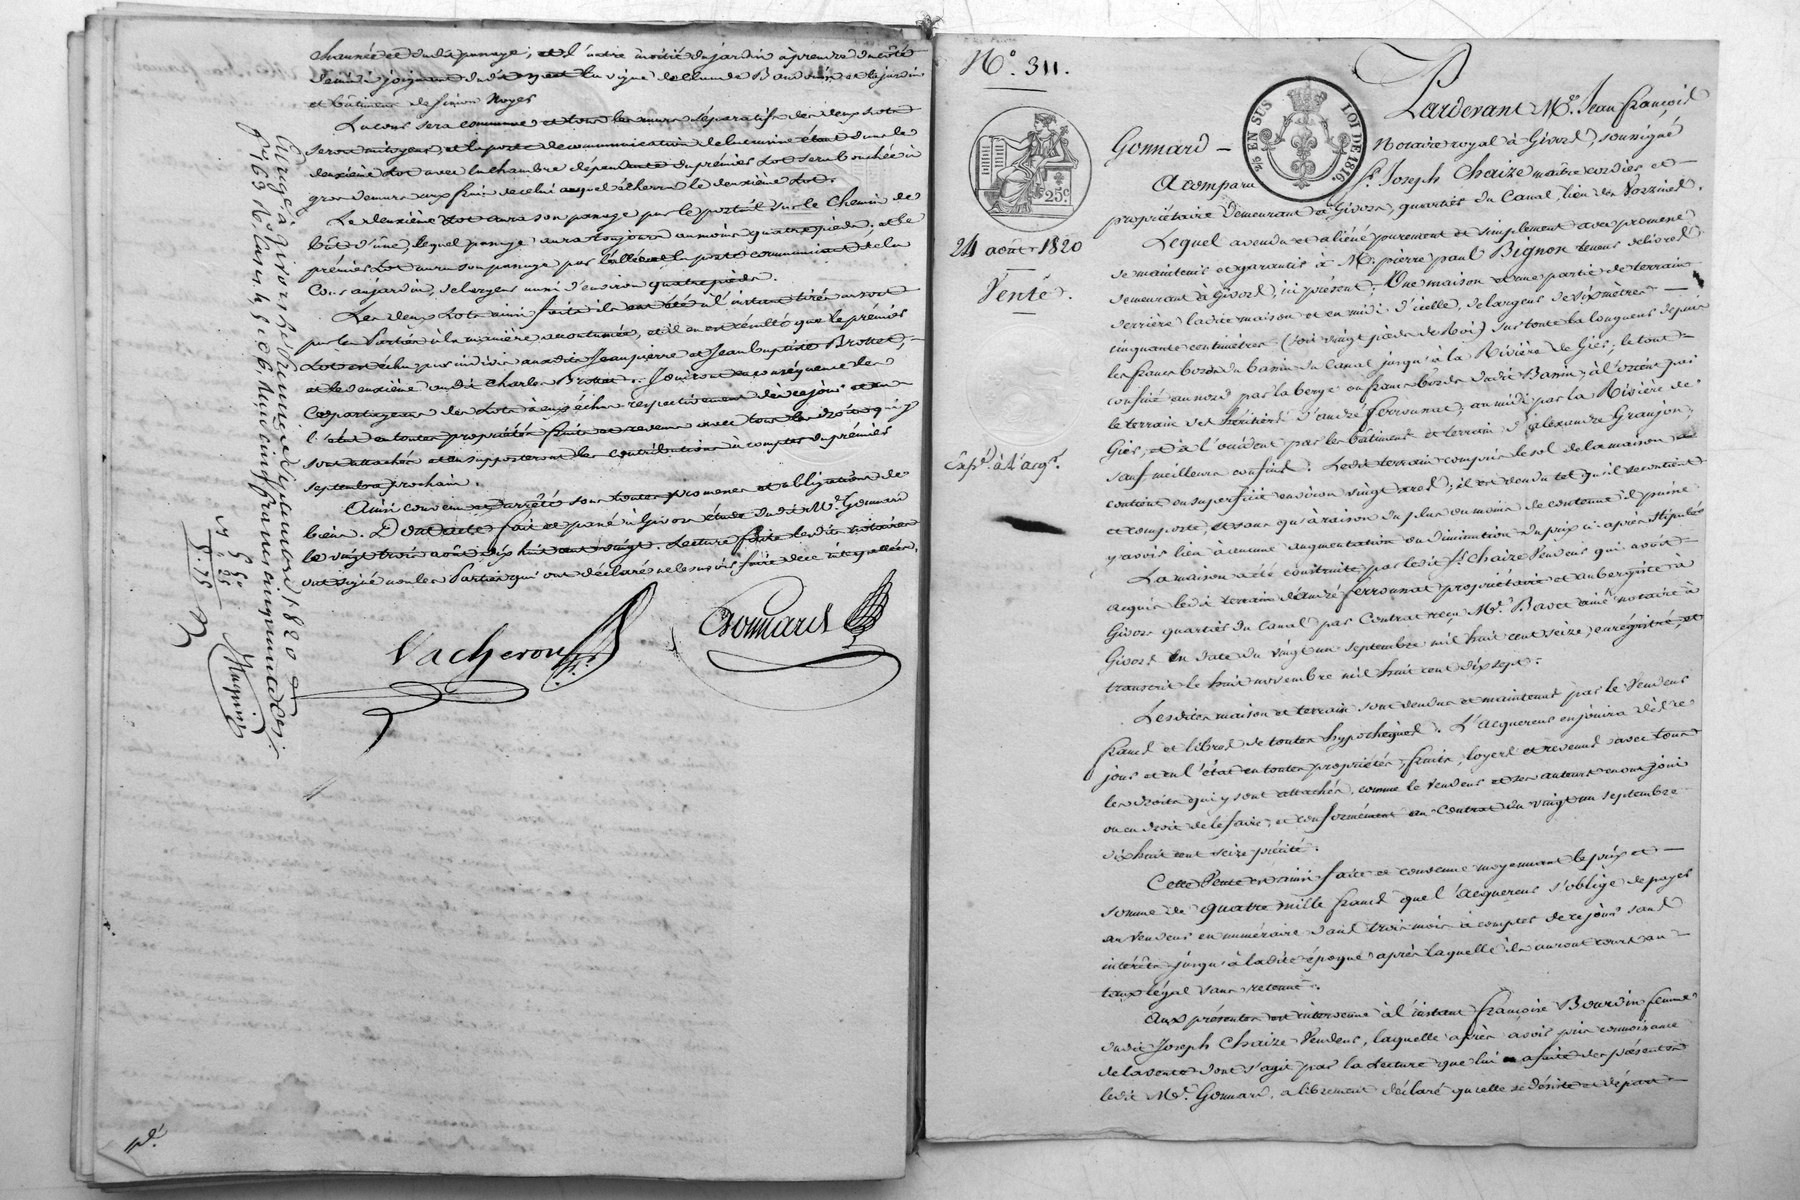 chaussée et du dit passage; et l'autre moitié du jardin à prendre du côté
de midi joignant du dit côté la vigne de Claude Baudin, et le jardin
et bâtiment de Simon Noyer
La cour sera commune et tous les murs séparatifs des deux lots
seront mitoyens, et la porte de communication de la cuisine étant dans le
deuxième Lot avec la chambre dépendante du premier Lot sera bouchée à
gros de murs aux frais de celui auquel écherra le deuxième Lot.
Le deuxième Lot aura son passage par le portail sur le Chemin de
lequel passage aura toujours au moins quatre pieds, et le
premier Lot aura son passage par la porte communicant de la
Cour au jardin, de largeur aussi d'environ quatre pieds.
Les deux Lots ainsi faits ils ont été à l'instant tirés au sort
par les Parties à la manière accoutumée, et il en est résulté que le premier
Lot est échu par indivis aux dits Jean pierre et Jean baptiste Brottet,
et le deuxième au dit Charles Brottet. Jouiront en conséquence les
Copartageans des Lots à eux échus respectivement dès ce jour et en
l'état en toutes propriétés fruits et revenus avec tous les droits qui y
sont attachés et en supporteront les contributions à compter du premier
septembre prochain.
Ainsi convenu et arrêté sous toutes promesses et obligations de
biens. Dont acte fait et passé à Givors étude du dit Mr. Gonnard
le vingt trois août dix huit cent vingt. Lecture faite les dits notaires
ont signé non les Parties qui ont déclaré ne le savoir faire de ce interpellées.
Vacheron
Gonnard
Enregistré à Givors le trente août 1820
Magnin
N.° 311.
25 EN SUS
LOI DE 1816.
25.c
24 août 1820
Vente.
Exp.on à l'acqr.
Pardevant Me. Jean françois
Gonnard — Notaire royal à Givors, soussigné
A comparu Sr. Joseph Chaize maître cordier et
propriétaire demeurant à Givors, quartier du Canal, lieu des Vorzines.
Lequel a vendu et aliéné purement et simplement avec promesse
de maintenir et garantir à Mr. pierre paul Bignon teneur de livres
demeurant à Givors, ici présent. Une maison et une partie de terrain
derrière la dite maison et en midi d'icelle, de largeur de six mètres
cinquante centimètres (soit vingt pieds de Roi) sur toute la longueur depuis
les francs bords du bassin du Canal jusqu'à la Rivière de Gier; le tout
confiné au nord par la berge ou francs bords du dit Bassin, à l'orient par
le terrain des héritiers d'andré ferrounat, au midi par la Rivière de
Gier, et à l'occident par les bâtimens et terrain d'alexandre Granjon,
sauf meilleurs confins. Le dit terrain compris le sol de la maison
contient en superficie environ vingt ares; il est vendu tel qu'il se contient
et comporte, et sans qu'à raison du plus ou moins de contenue il puisse
y avoir lieu à aucune augmentation ou diminution du prix ci-après stipulé
La maison a été construite par le dit Sr. Chaize Vendeur qui avoit
acquis le dit terrain d'andré ferrounat propriétaire et aubergiste à
Givors quartier du Canal par Contrat reçu Me. Bavet ainé notaire à
Givors en date du vingt un septembre mil huit cent seize, enregistré, et
transcrit le huit novembre mil huit cent dix sept.
Les dites maison et terrain sont vendus et maintenus par le Vendeur
francs et libres de toutes hypothèques. L'acquereur en jouira dès ce
jour et en l'état en toutes propriétés, fruits, loyers et revenus avec tous
les droits qui y sont attachés, comme le Vendeur et ses auteurs en ont joui
ou eu droit de le faire, et conformément au Contrat du vingt un septembre
dix huit cent seize précité.
Cette Vente est ainsi faite et convenue moyennant le prix et
somme de quatre mille francs que l'acquereur s'oblige de payer
au Vendeur en numéraire dans trois mois à compter de ce jour sans
intérêts jusqu'à la dite époque après laquelle ils auront cours au
taux légal sans retenue.
Aux présentes est intervenue à l'instant françoise Bourdin femme
du dit Joseph Chaize Vendeur, laquelle après avoir pris connoissance
de la vente dont s'agit par la Lecture que lui a faite des présentes
le dit Me. Gonnard, a librement déclaré qu'elle se désiste et départ